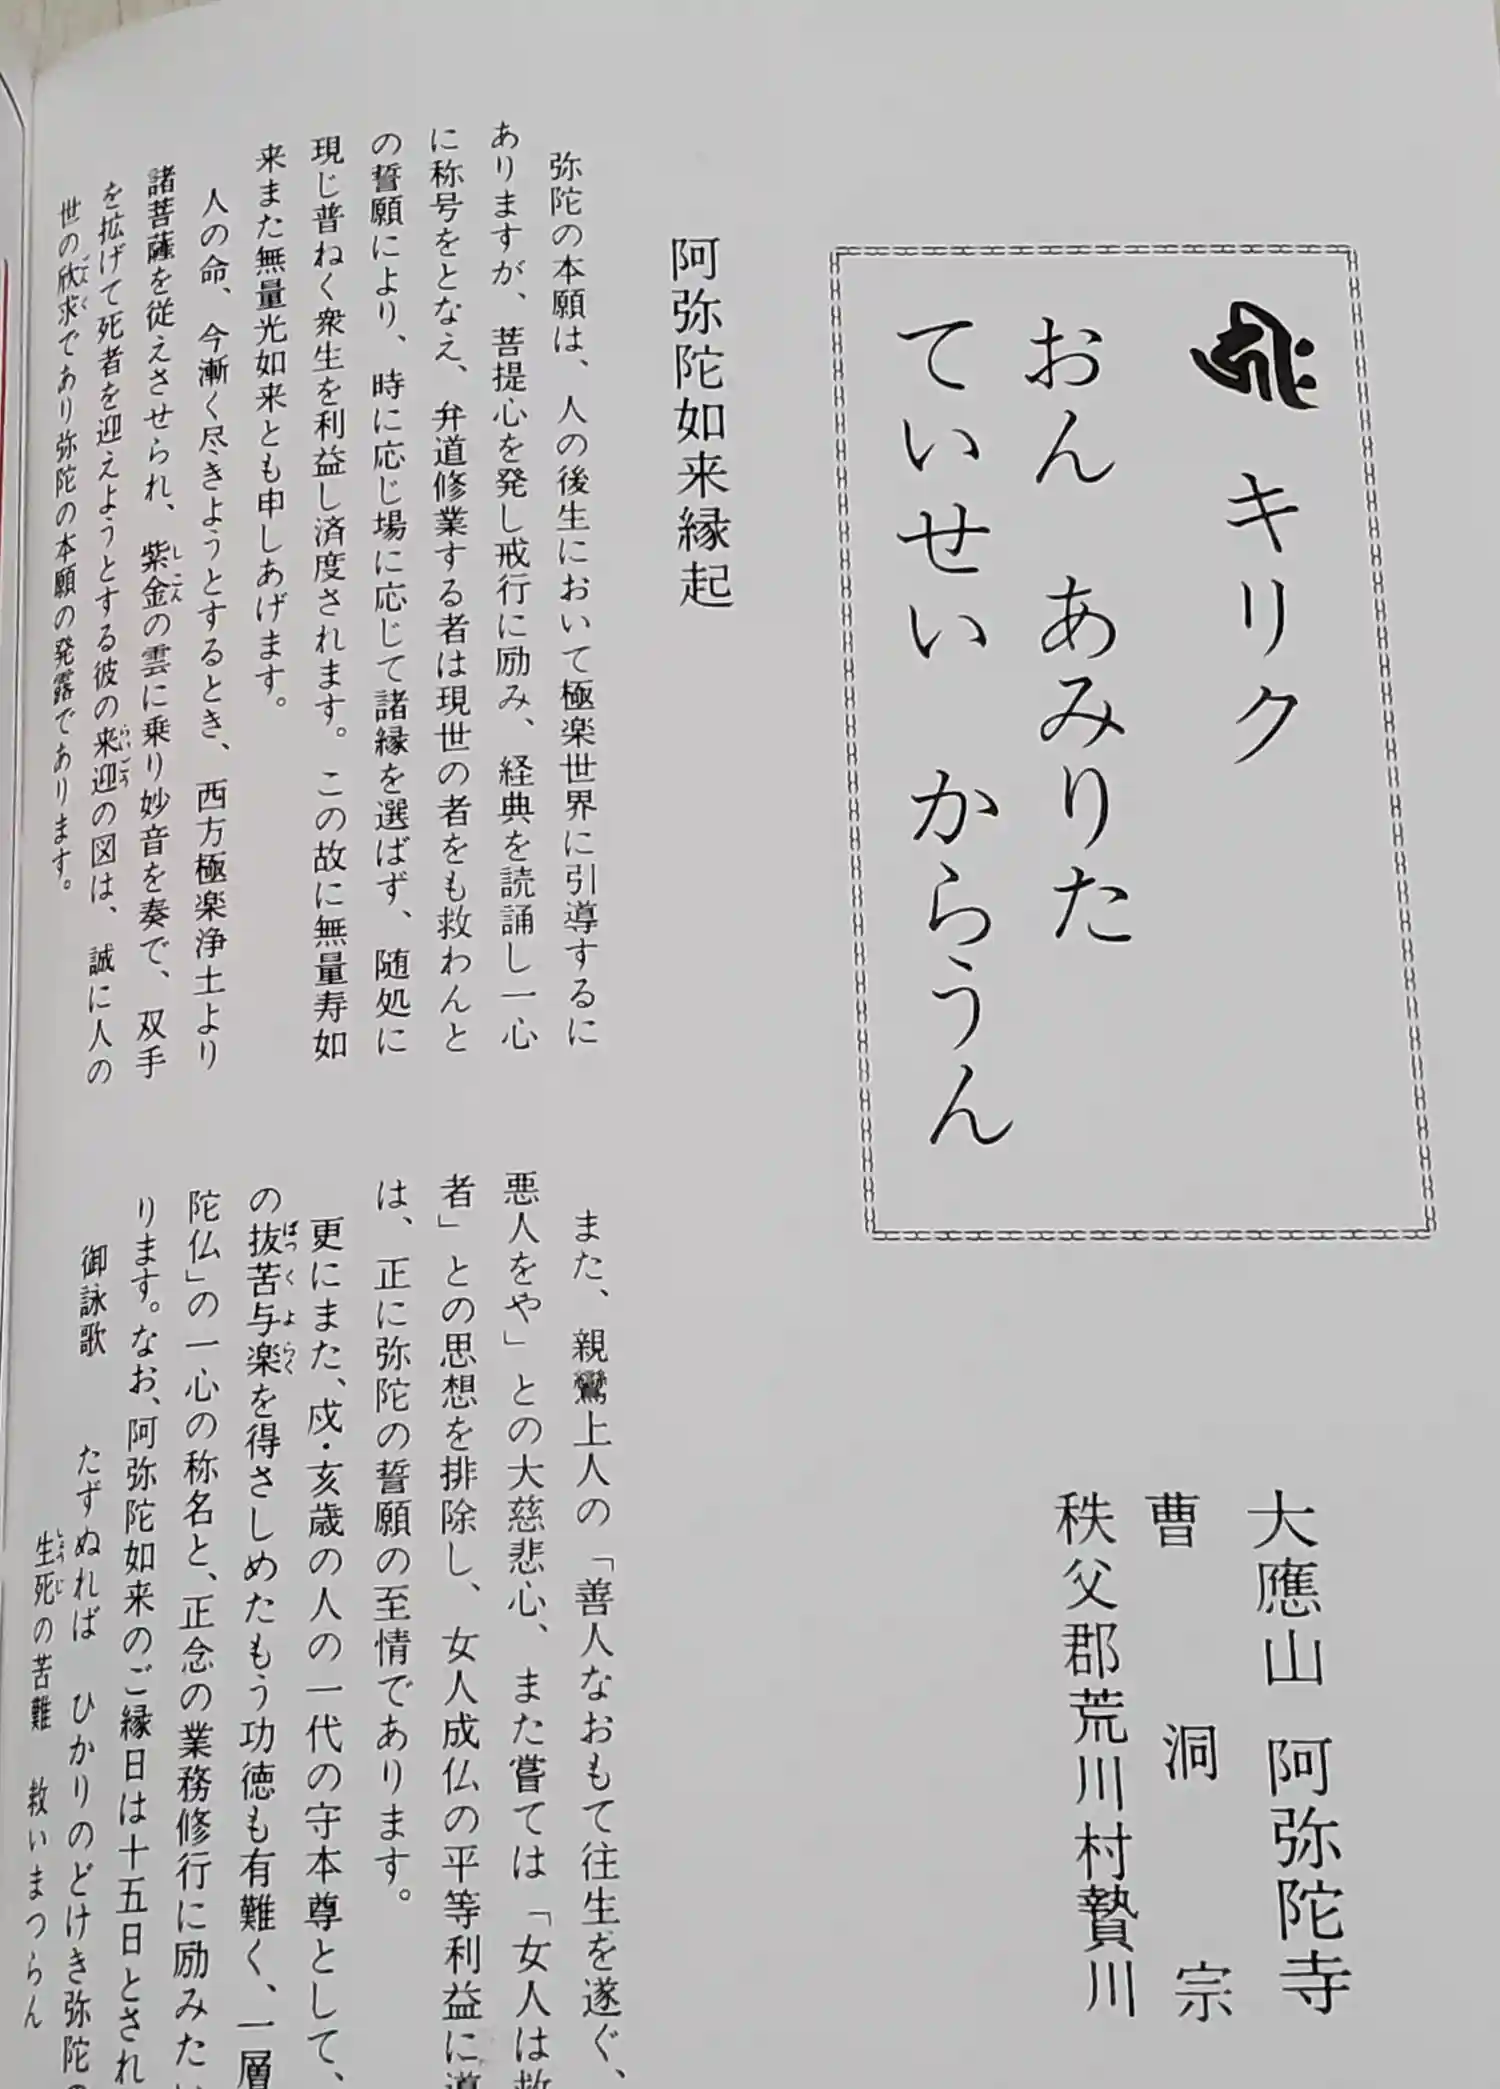 キリク
おん あみりた
ていせい からうん
大應山 阿弥陀寺
曹洞宗
秩父郡荒川村贄川
阿弥陀如来縁起
弥陀の本願は、人の後生において極楽世界に引導するに
ありますが、菩提心を発し戒行に励み、経典を読誦し一心
に称号をとなえ、弁道修業する者は現世の者をも救わんと
の誓願により、時に応じ場に応じて諸縁を選ばず、随処に
現じ普ねく衆生を利益し済度されます。この故に無量寿如
来また無量光如来とも申しあげます。
人の命、今漸く尽きようとするとき、西方極楽浄土より
諸菩薩を従えさせられ、紫金の雲に乗り妙音を奏で、双手
を拡げて死者を迎えようとする彼の来迎の図は、誠に人の
世の欣求であり弥陀の本願の発露であります。
また、親鸞上人の「善人なおもて往生を遂ぐ、
悪人をや」との大慈悲心、また嘗ては「女人は救
者」との思想を排除し、女人成仏の平等利益に導
は、正に弥陀の誓願の至情であります。
更にまた、戌・亥歳の人の一代の守本尊として、
の抜苦与楽を得さしめたもう功徳も有難く、一層
陀仏」の一心の称名と、正念の業務修行に励みたい
ります。なお、阿弥陀如来のご縁日は十五日とされ
御詠歌 たずぬれば ひかりのどけき弥陀の
生死の苦難 救いまつらん